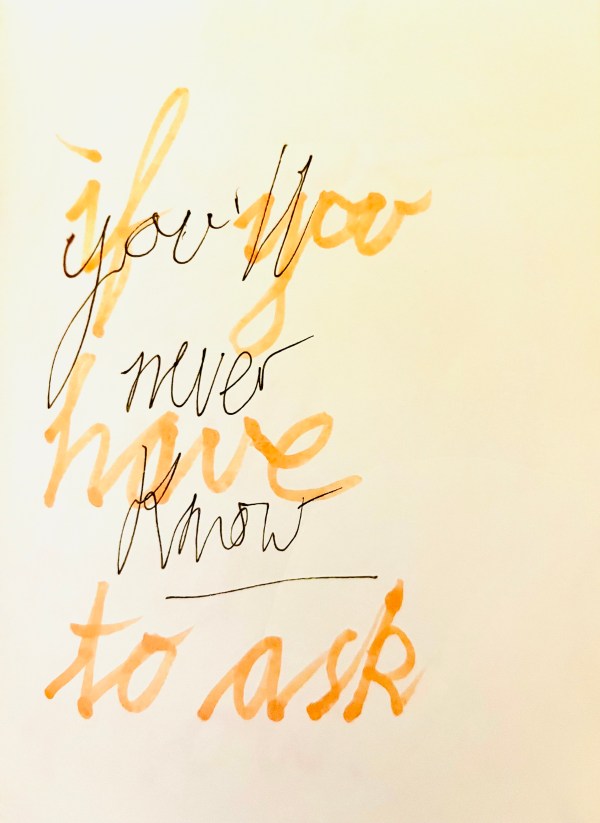 if you
you'll
never
have
know
to ask